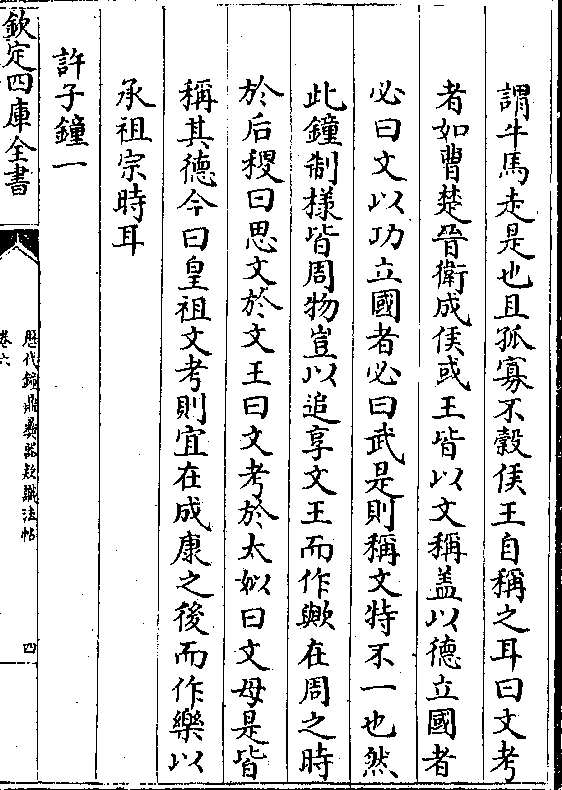 謂牛馬走是也且孤寡不穀侯王自稱之耳曰文考
者如曹楚晉衛成侯或王皆以文稱盖以德立國者
必曰文以功立國者必曰武是則稱文特不一也然
此鐘制様皆周物豈以追享文王而作歟在周之時
於后稷曰思文於文王曰文考於太姒曰文母是皆
稱其德今曰皇祖文考則宜在成康之後而作樂以
承祖宗時耳
許子鐘一
欽定四庫全書
歴代鐘鼎彝器款識法帖
卷六
四